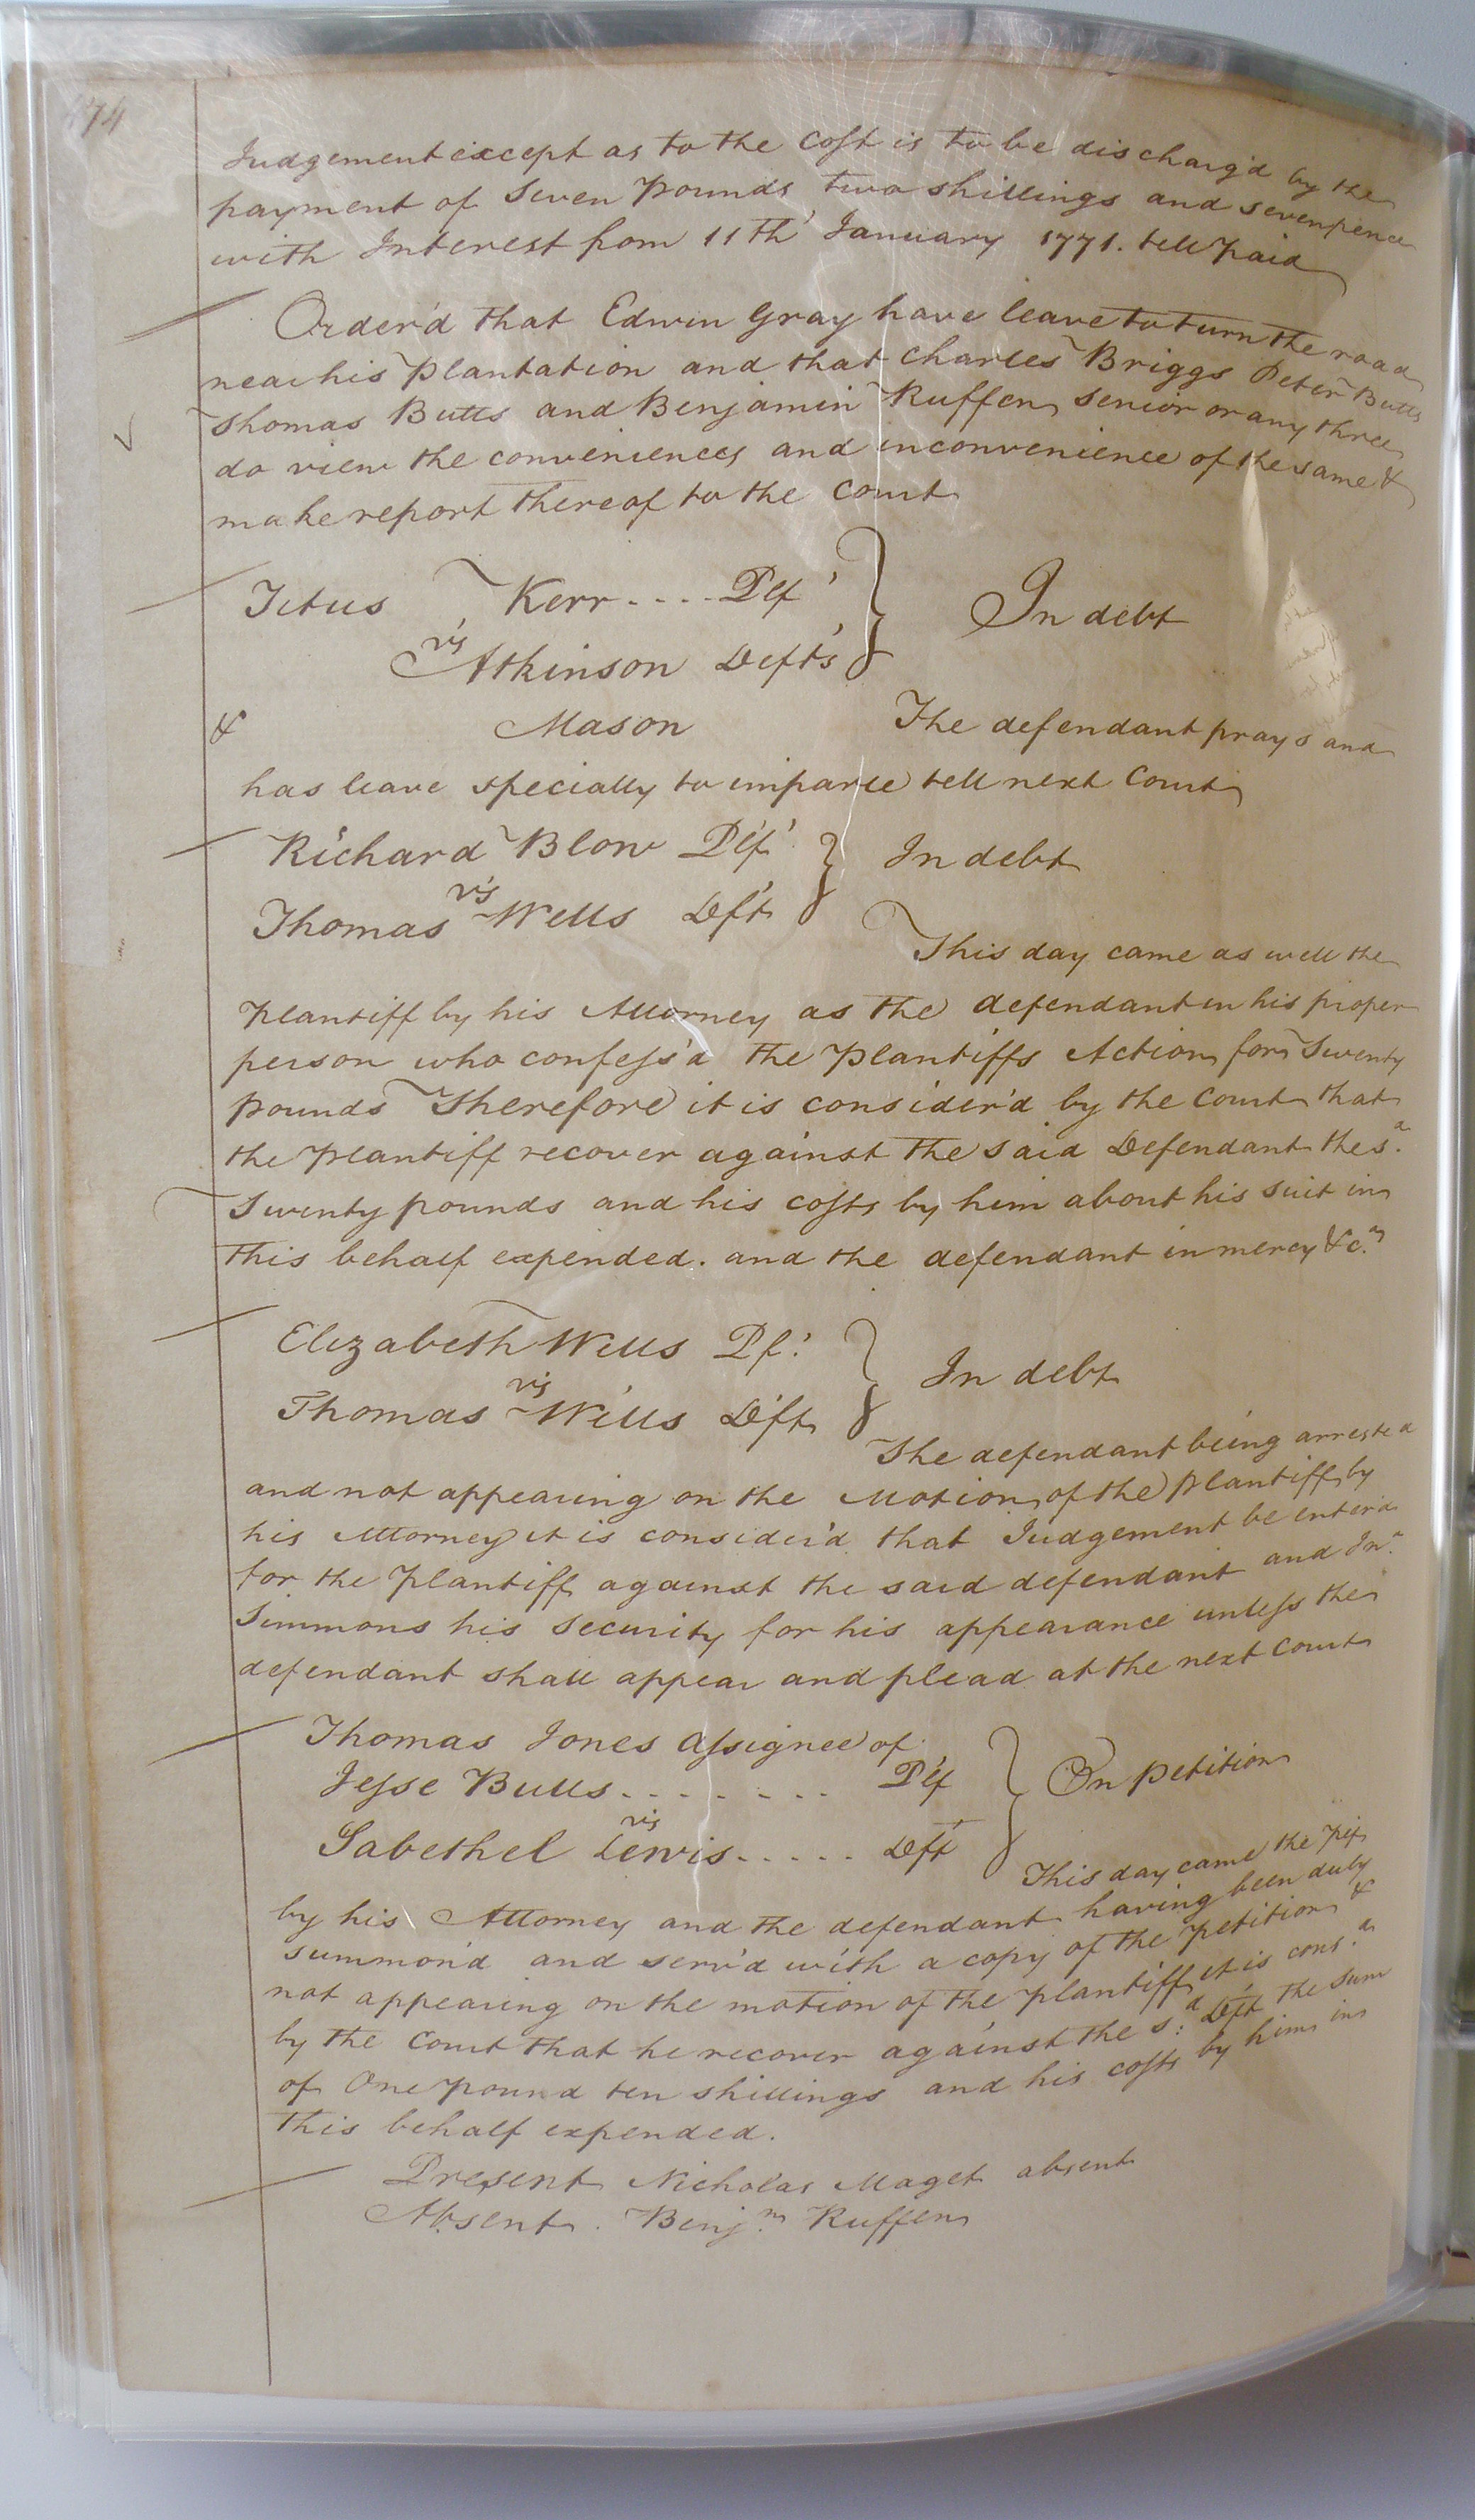 74
Judgement except as to the Cost is to be discharg'd by the
payment of Seven pounds two shillings and sevenpence
with Interest from 11th January 1771. till paid
Order'd that Edwin Gray have leave to turn the road
near his Plantation and that Charles Briggs Peter Butts
Thomas Butts and Benjamin Ruffen senior or any three
do view the conveniences and inconvenience of the same &
make report thereof to the Court
Titus Kerr .... Plf
vs
Atkinson Defts
In debt
& Mason The defendant prays and
has leave specially to imparle till next Court
Richard Blow Plf
In debt
vs
Thomas Wells Dft
This day came as well the
plantiff by his Attorney as the defendant in his proper
person who confess'd the plantiffs Action for Twenty
pounds Therefore it is consider'd by the Court that
the plantiff recover against the said Defendant the sd.
Twenty pounds and his costs by him about his suit in
this behalf expended. and the defendant in mercy &c.
Elizabeth Wills Plf.
In debt
vs
Thomas Wills Dft
The defendant being arrested
and not appearing on the Motion of the plantiff by
his Attorney it is consider'd that Judgement be enter'd
for the plantiff against the said defendant and Jno.
Simmons his security for his appearance unless the
defendant shall appear and plead at the next Court
Thomas Jones Assignee of
Jesse Butts ....... Plf
On petition
vs
Sabethel Lewis ..... Dft
This day came the Plf
by his Attorney and the defendant having been duly
summon'd and serv'd with a copy of the petition &
not appearing on the motion of the plantiff it is cons.d
by the Court that he recover against the s:d Dft the sum
of One pound ten shillings and his costs by him in
this behalf expended.
Present Nicholas Maget absent
Absent. Benj.n Ruffen